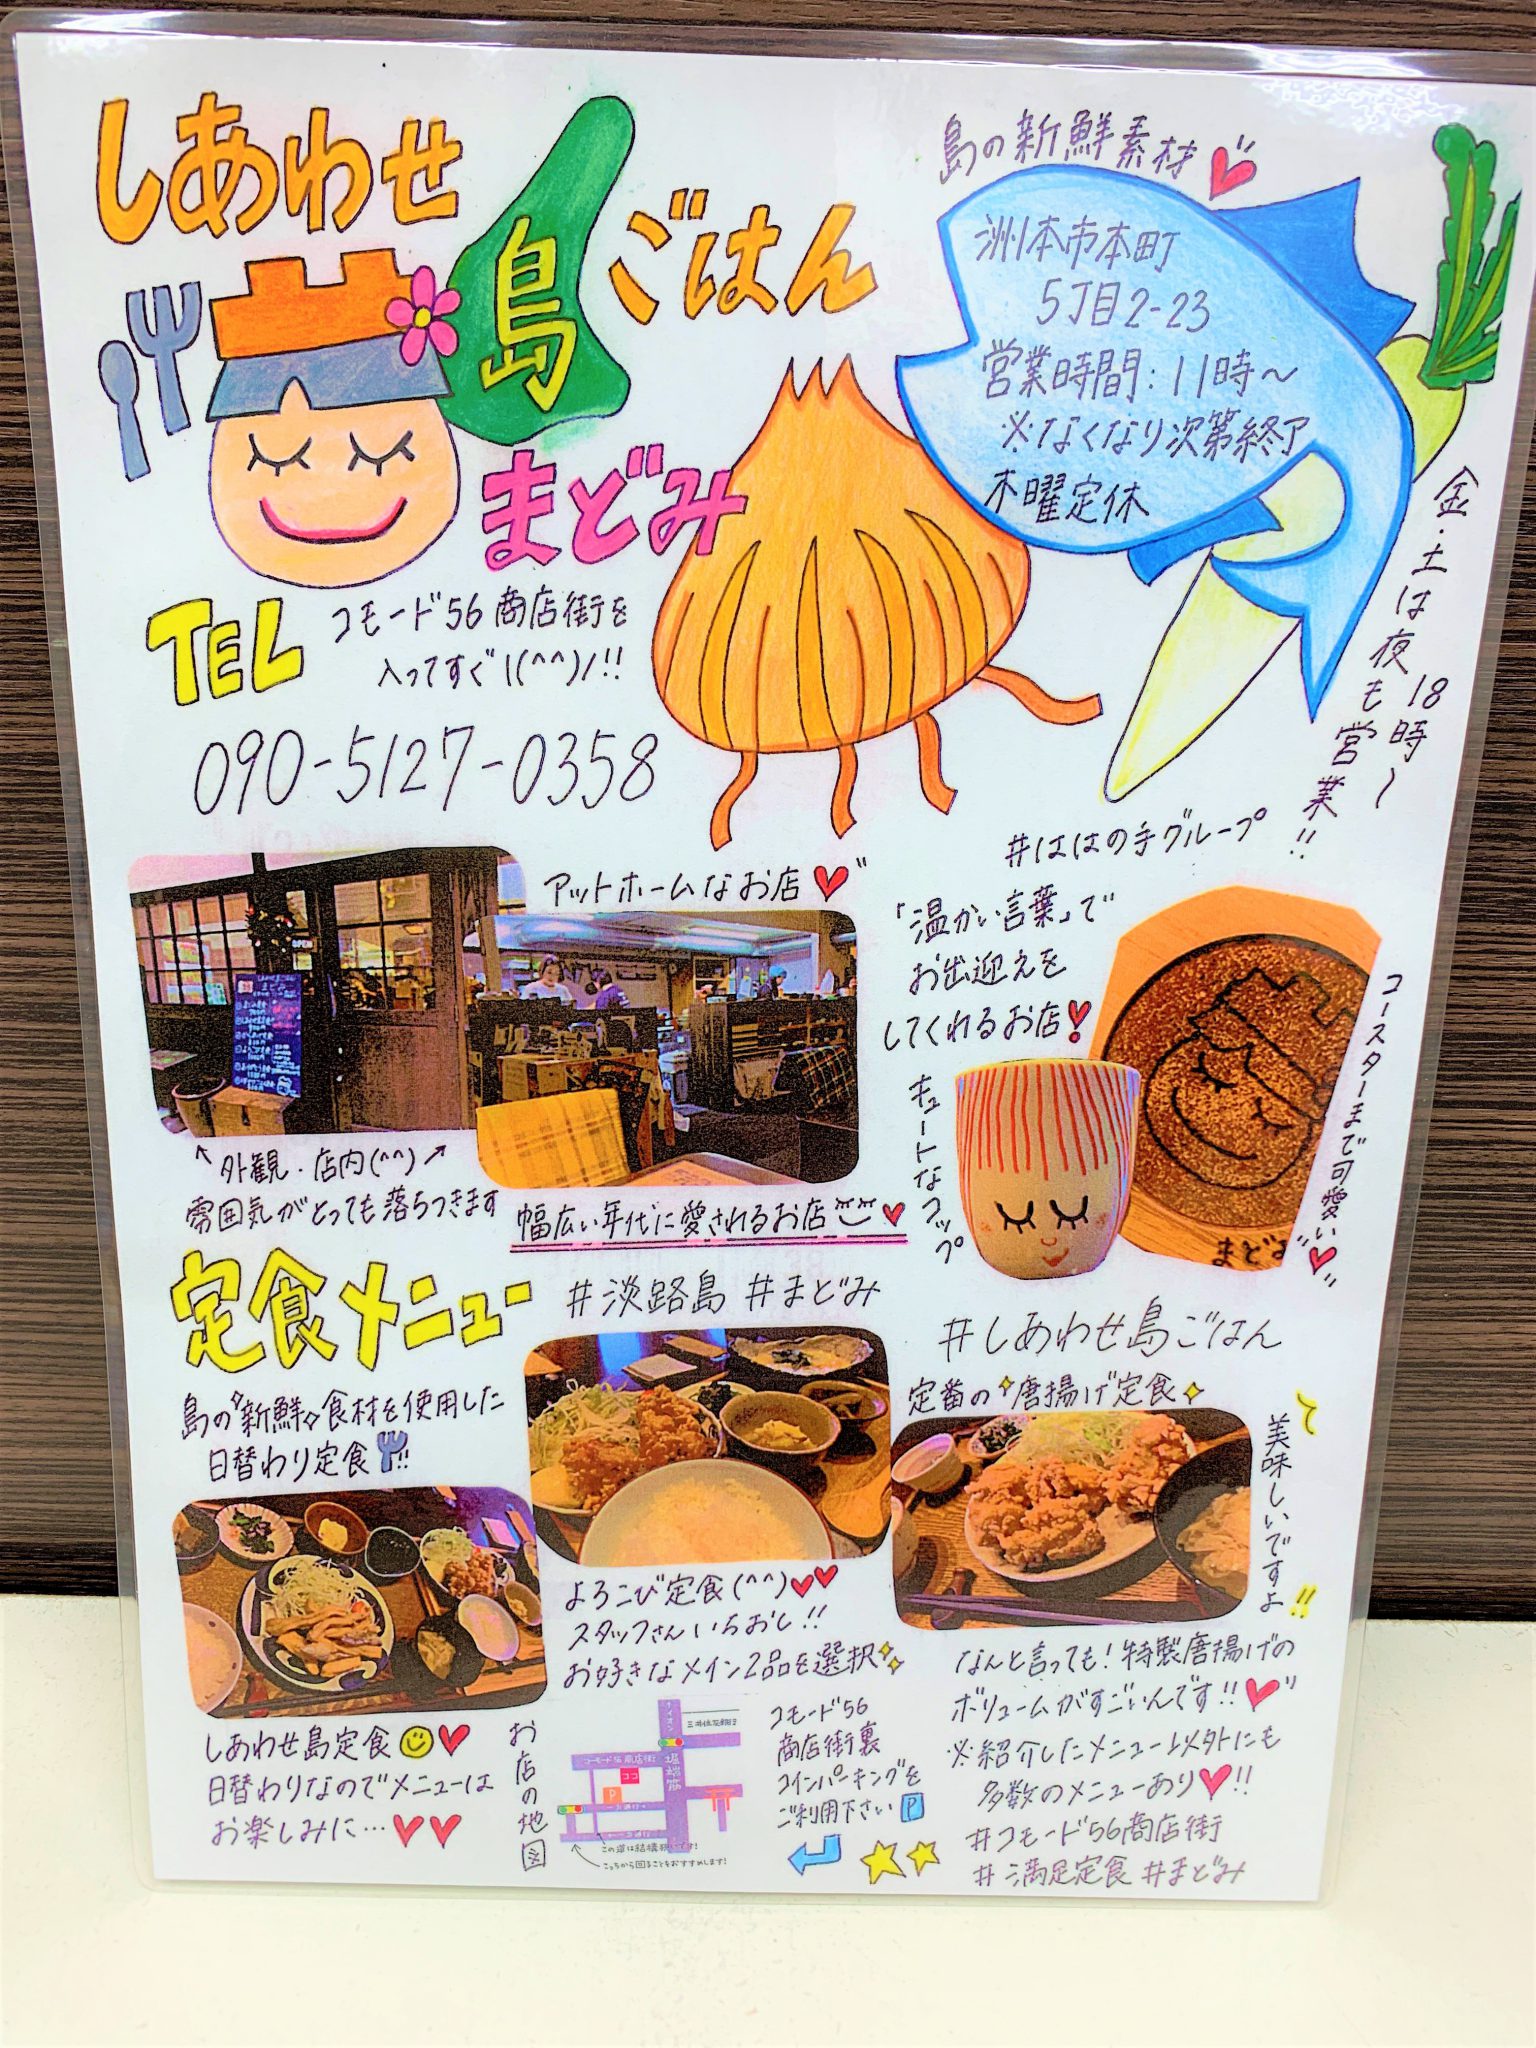 しあわせ
島
ごはん
まどみ
島の新鮮素材
洲本市本町
5丁目2-23
営業時間:11時~
※なくなり次第終了
木曜定休
金・土は夜も営業!!
18時~
TEL
コモード56商店街を
入ってすぐ!(^^)/!!
090-5127-0358
#ははの手グループ
アットホームなお店
「温かい言葉」で
お出迎えを
してくれるお店!
キュートなコップ
コースターまで可愛い
まどみ
OPEN
↖外観・店内(^^)↗
雰囲気がとっても落ちつきます
幅広い年代に愛されるお店
定食メニュー
#淡路島 #まどみ
#しあわせ島ごはん
島の"新鮮"食材を使用した
日替わり定食!!
定番の"唐揚げ定食
美味しいですよ!!
よろこび定食(^^)
スタッフさんいちおし!!
お好きなメイン2品を選択
しあわせ島定食
日替わりなのでメニューは
お楽しみに…
お店の地図
コモード56商店街
ココ
P
堀端筋
この道は結構狭いです!
こっちから回ることをおすすめします!
コモード56
商店街裏
コインパーキングを
ご利用下さいP
なんと言っても!特製唐揚げの
ボリュームがすごいんです!!
※紹介したメニュー以外にも
多数のメニューあり!!
#コモード56商店街
#満足定食 #まどみ